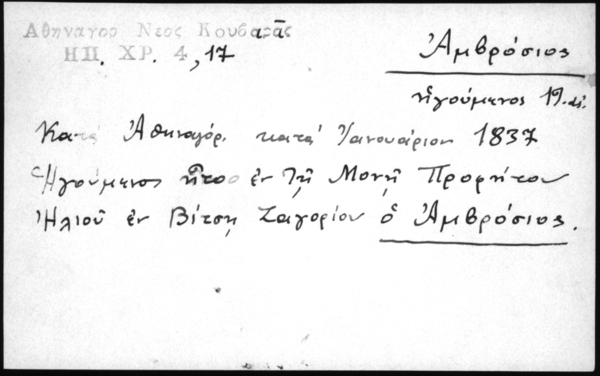 Ἀθηναγορ Νεος Κουβαρᾶς
ΗΠ. ΧΡ. 4, 17
Ἀμβρόσιος
ἡγούμενος 19. αἰ.
Κατὰ Ἀθηναγόρ. κατὰ Ἰανουάριον 1837
Ἡγούμενος ἦτο ἐν τῇ Μονῇ Προφήτου
Ἠλιοῦ ἐν Βίτσῃ Ζαγορίου ὁ Ἀμβρόσιος.